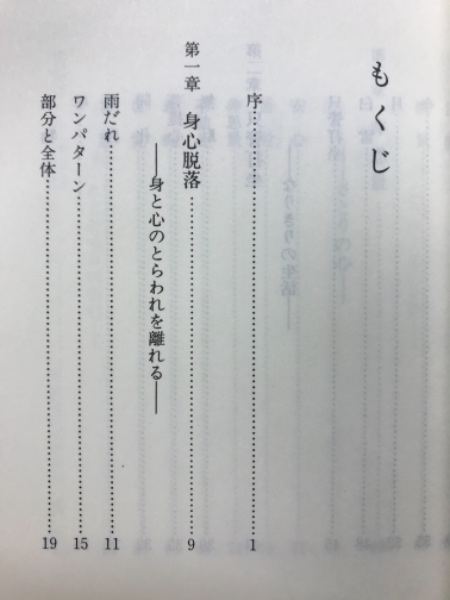 もくじ
序……………………………1
第一章　身心脱落……………………………9
――身と心のとらわれを離れる――
雨だれ……………………………11
ワンパターン……………………………15
部分と全体……………………………19